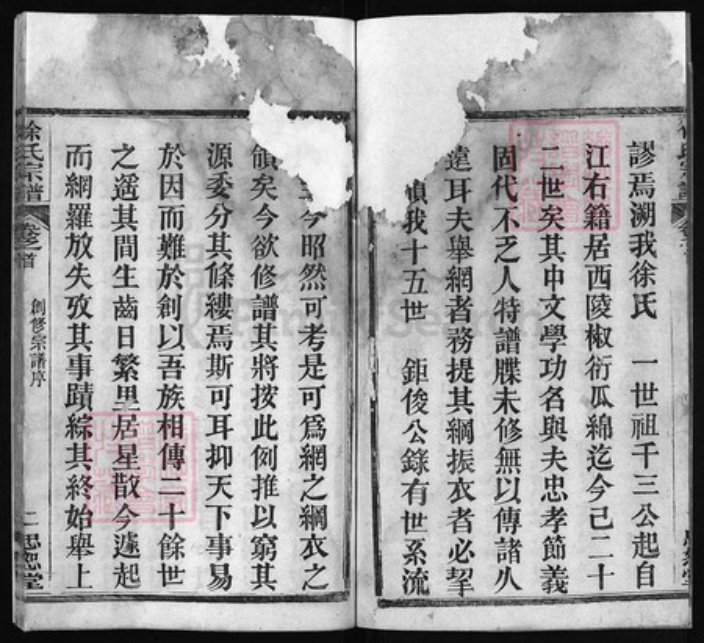 謬焉溯我徐氏 一世祖千三公起自
江右籍居西陵椒衍瓜綿迄今已二十
二世矣其中文學功名與夫忠孝節義
固代不乏人特譜牒未修無以傳諸久
遠耳夫舉網者務提其綱振衣者必挈
我十五世 鉅俊公錄有世系流
今昭然可考是可爲網之綱衣之
領矣今欲修譜其將按此例推以窮其
源委分其條縷焉斯可耳抑天下事易
於因而難於創以吾族相傳二十餘世
之遥其間生齒日繁里居星散今遽起
而網羅放失攷其事蹟綜其終始舉上
徐氏宗譜 卷之首 創修宗譜序 二 思恕堂